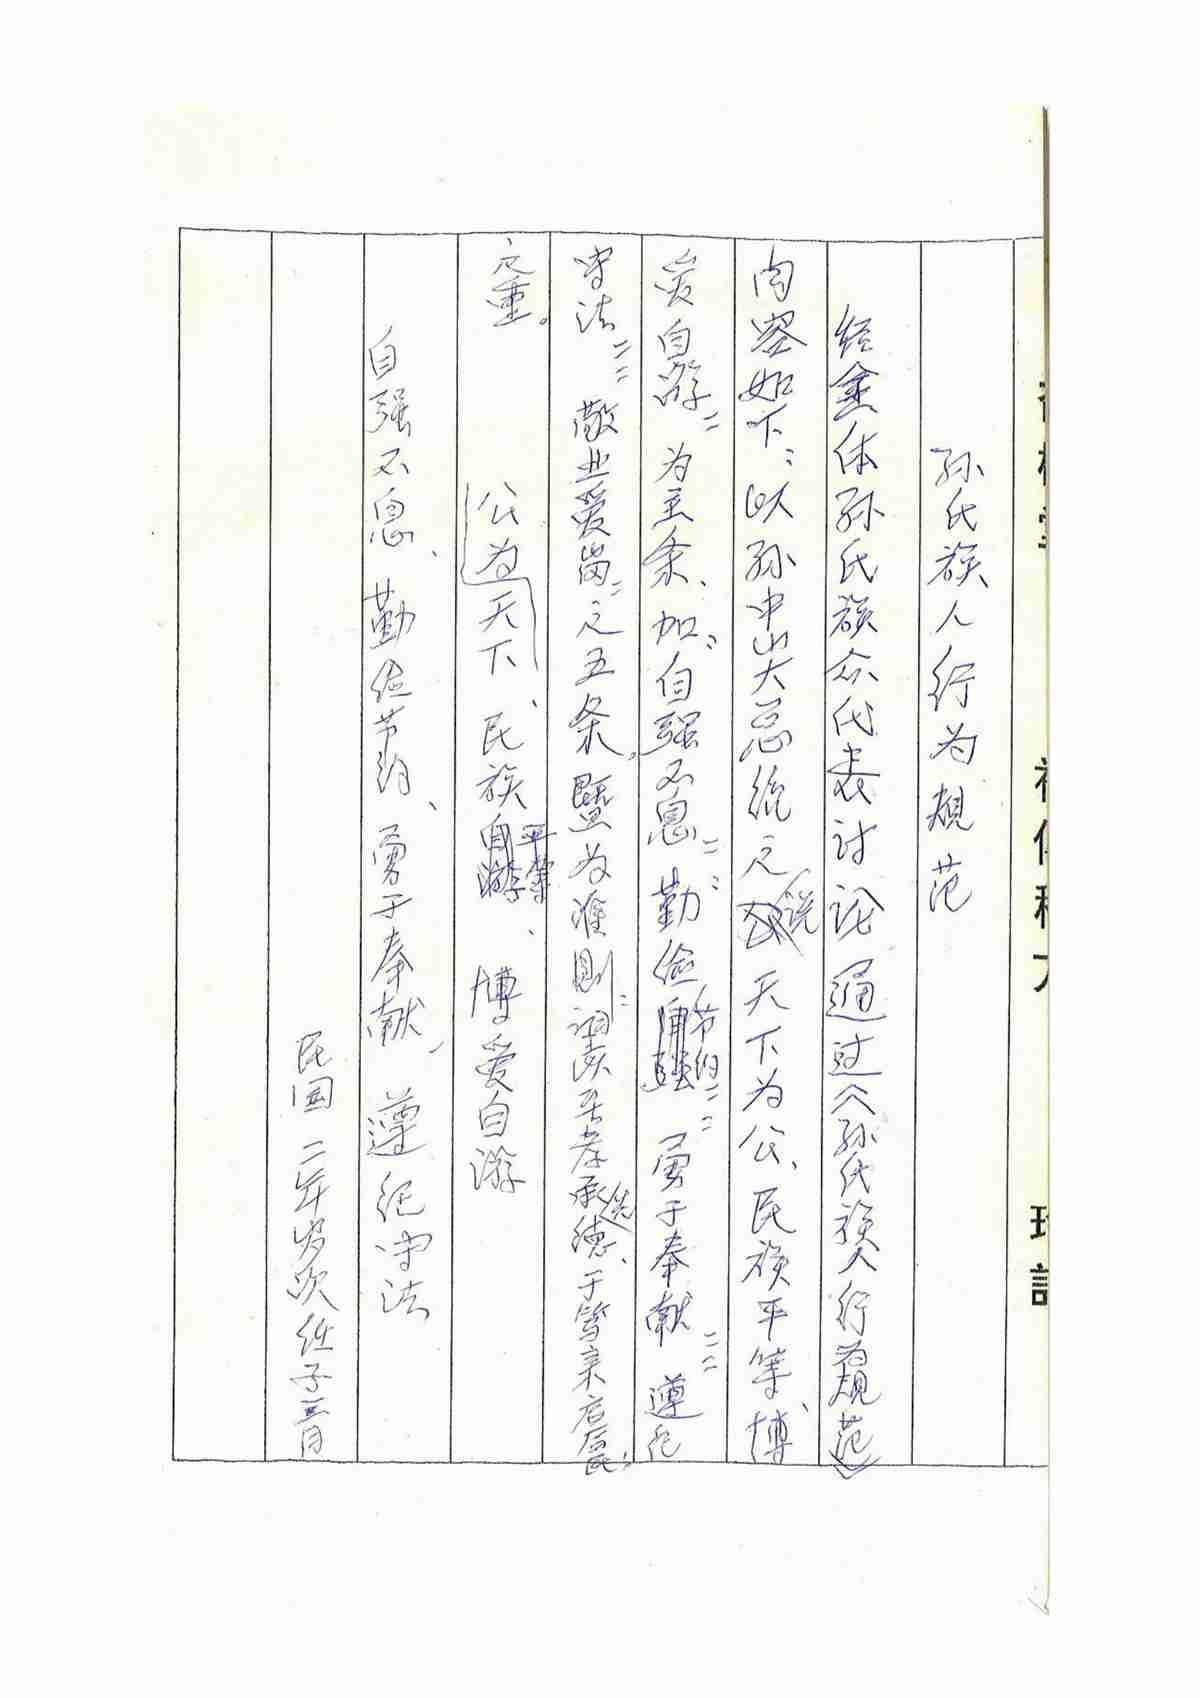 孙氏族人行为规范
经全体孙氏族众代表讨论通过《孙氏族人行为规范》
内容如下：以孙中山大总统之说天下为公、民族平等、博
爱自游为主条、加自强不息勤俭节约勇于奉献遵纪
守法敬业爱岗之五条，暨为准则
承先德、于笃亲启后昆
之重。
公为天下、民族平等、博爱自游
自强不息、勤俭节约、勇于奉献、遵纪守法
民国二年岁次任子三月